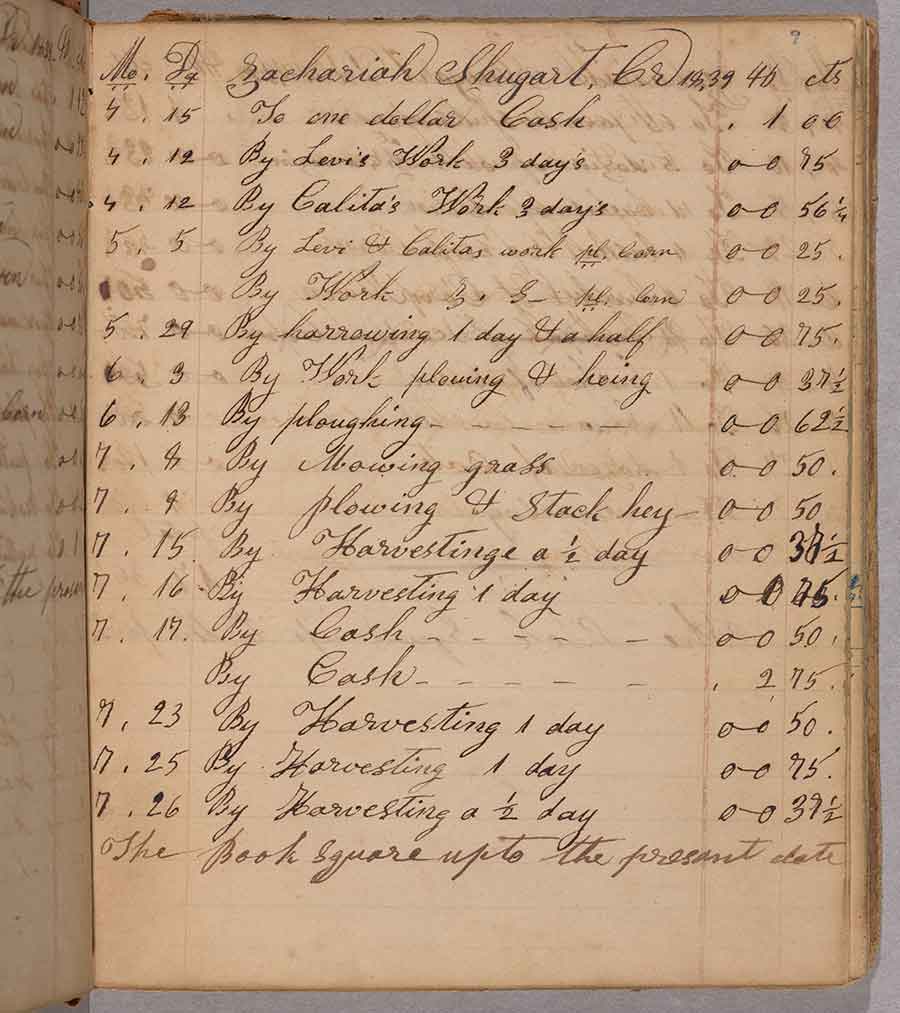 Mo. Da Zachariah Shugart, Cr 1839 cts
4 . 15 To one dollar Cash . 1 00
4 . 12 By Levi's Work 3 day's 0-0 75
4 . 12 By Calita's Work 3 day's 0-0 56 1/4
5 . 5 By Levi & Calitas work pl. Corn 0-0 25.
By Work pl. Corn 0-0 25.
5 . 29 By harrowing 1 day & a half 0-0 75.
6 . 3 By Work plowing & hoing 0-0 37 1/2
6 . 13 By ploughing - - - - - 0-0 62 1/2
7 . 8 By Mowing grass 0-0 50.
7 . 9 By plowing & Stack hey - 0-0 50
7 . 15 By Harvestinge a 1/2 day 0-0 37 1/2
7 . 16 By Harvesting 1 day 75.
7 . 17. By Cash - - - - - - 0-0 50.
By Cash - - - - - - . 2 75.
7 . 23 By Harvesting 1 day 0-0 50.
7 . 25 By Harvesting 1 day 0-0 75.
7 . 26 By Harvesting a 1/2 day 0-0 37 1/2
The Book Square upto the presant date